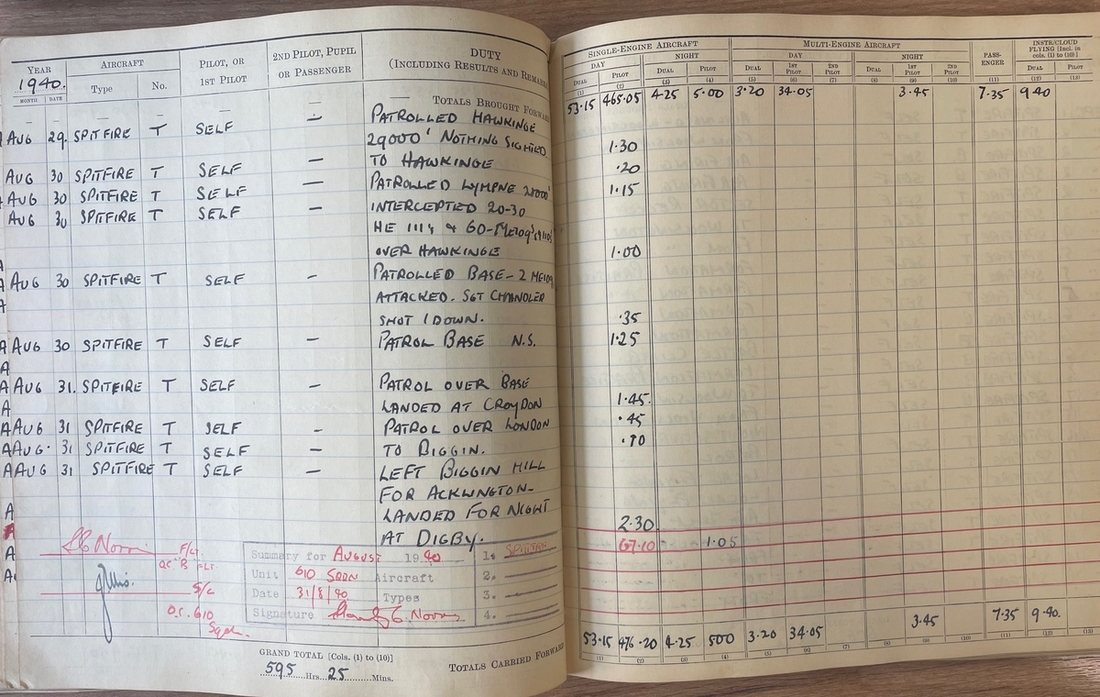 YEAR AIRCRAFT PILOT, OR 2ND PILOT, PUPIL DUTY
1940. 1ST PILOT OR PASSENGER (INCLUDING RESULTS AND REMARKS
MONTH DATE Type No.
— — — — TOTALS BROUGHT FORWARD
AUG 29. SPITFIRE T SELF — PATROLLED HAWKINGE
29000' NOTHING SIGHTED
AUG 30 SPITFIRE T SELF — TO HAWKINGE
AUG 30 SPITFIRE T SELF — PATROLLED LYMPNE
AUG 30 SPITFIRE T SELF — INTERCEPTED 20-30
HE 111s & 60-ME109s
OVER HAWKINGE
AUG 30 SPITFIRE T SELF — PATROLLED BASE - 2 ME109
ATTACKED. SGT CHANDLER
SHOT 1 DOWN.
AUG 30 SPITFIRE T SELF — PATROL BASE N.S.
AUG 31. SPITFIRE T SELF — PATROL OVER BASE
LANDED AT CROYDON
AUG 31 SPITFIRE T SELF — PATROL OVER LONDON
AUG. 31 SPITFIRE T SELF — TO BIGGIN.
AUG 31 SPITFIRE T SELF — LEFT BIGGIN HILL
FOR ACKLINGTON-
LANDED FOR NIGHT
AT DIGBY.
F/LT
O.C. "B" FLT
S/L
O.C. 610
Sqdn.
Summary for AUGUST 1940 1. SPITFIRE
Unit 610 SQDN Aircraft 2.
Date 31/8/40 Types 3.
Signature Stanley C. Norris 4.
GRAND TOTAL [Cols. (1) to (10)]
595 Hrs. 25 Mins.
TOTALS CARRIED FORWARD
SINGLE-ENGINE AIRCRAFT MULTI-ENGINE AIRCRAFT PASS-ENGER INSTR/CLOUD FLYING [Incl. in cols. (1) to (10)]
DAY NIGHT DAY NIGHT
DUAL PILOT DUAL PILOT DUAL 1ST PILOT 2ND PILOT DUAL 1ST PILOT 2ND PILOT DUAL PILOT
(1) (2) (3) (4) (5) (6) (7) (8) (9) (10) (11) (12) (13)
53.15 465.05 4.25 5.00 3.20 34.05 3.45 7.35 9.40
1.30
.20
1.15
1.00
.35
1.25
1.45.
.45
2.30
67.10 1.05
53.15 476.20 4.25 500 3.20 34.05 3.45 7.35 9.40.
(1) (2) (3) (4) (5) (6) (7) (8) (9) (10) (11) (12) (13)